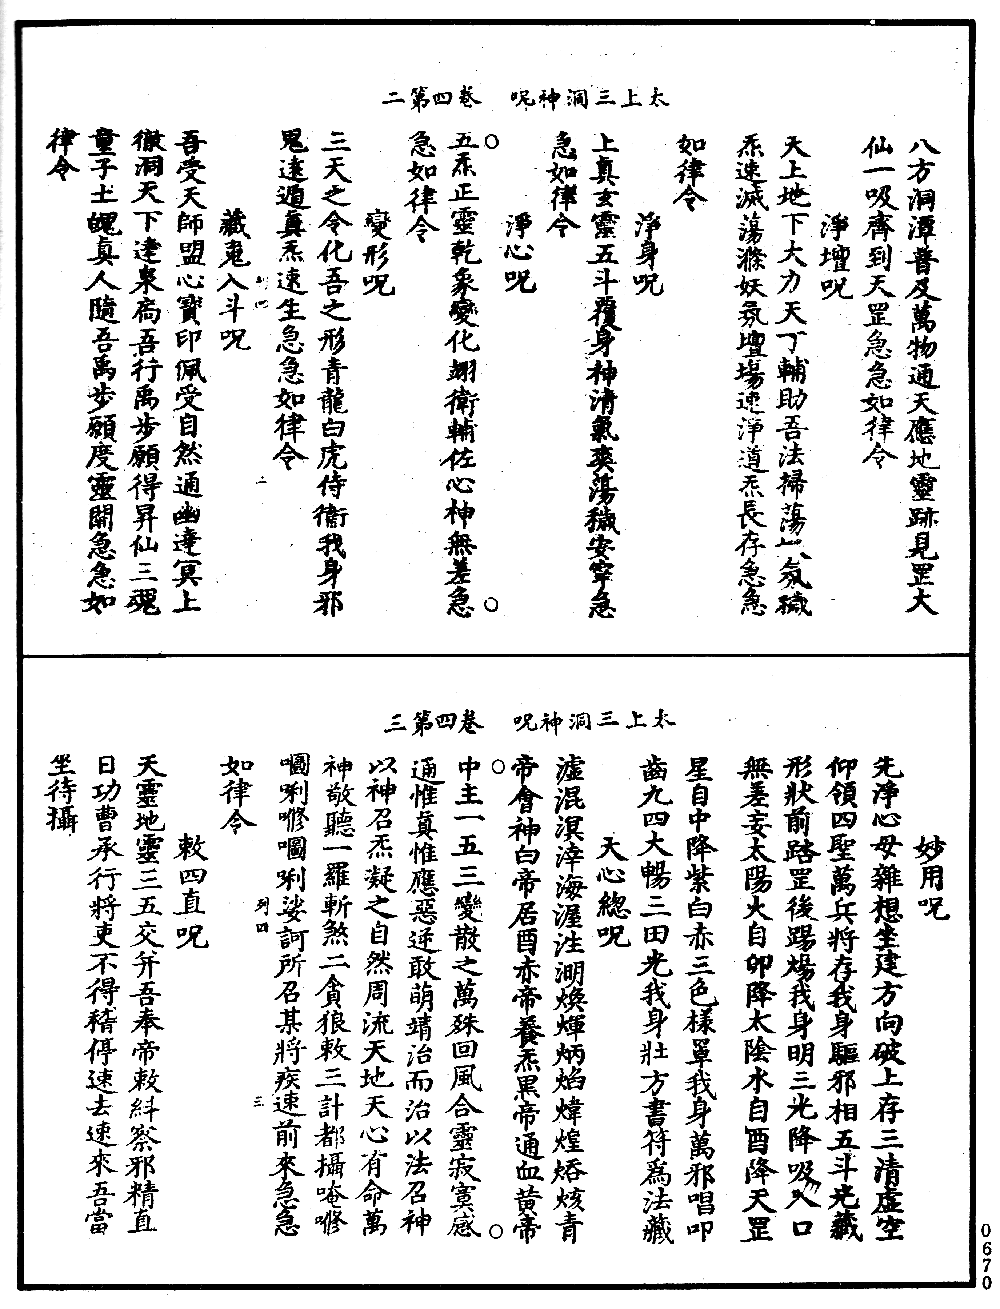 太上三洞神呪　卷四第二
八方洞潭普及萬物通天應地靈跡見罡大
仙一吸齊到天罡急急如律令
淨壇呪
天上地下大力天丁輔助吾法掃蕩氛穢
炁速滅蕩滌妖氛壇場速淨道炁長存急急
如律令
淨身呪
上真玄靈五斗覆身神清氣爽蕩穢安寧急
急如律令
淨心呪
五炁正靈乾象變化翊衛輔佐心神無差急
急如律令
變形呪
三天之令化吾之形青龍白虎侍衞我身邪
鬼遠遁真炁速生急急如律令
藏鬼入斗呪
吾受天師盟心寶印佩受自然通幽達冥上
徹洞天下達泉扃吾行禹步願得昇仙三魂
童子七魄真人隨吾禹步願度靈關急急如
律令
二
太上三洞神呪　卷四第三
妙用呪
先淨心毋雜想坐建方向破上存三清虛空
仰領四聖萬兵將存我身驅邪相五斗光藏
形狀前踏罡後踢煬我身明三光降吸入口
無差妄太陽火自卯降太陰水自酉降天罡
星自中降紫白赤三色樣罩我身萬邪唱叩
齒九四大暢三田光我身壯方書符爲法藏
天心總呪
濾混溟涬海渥泩溯煥煇炳焰煒煌焐烗青
帝會神白帝居酉赤帝養炁黑帝通血黄帝
中主一五三變散之萬殊回風合靈寂寞感
通惟真惟應惡逆敢萌靖治而治以法召神
以神召炁凝之自然周流天地天心有命萬
神敬聽一羅斬煞二貪狼敕三計都攝唵㗭
嚪唎㗭嚪唎娑訶所召某將疾速前來急急
如律令
敕四直呪
天靈地靈三五交并吾奉帝敕糾察邪精直
日功曹承行將吏不得稽停速去速來吾當
坐待攝
列四
三
0670